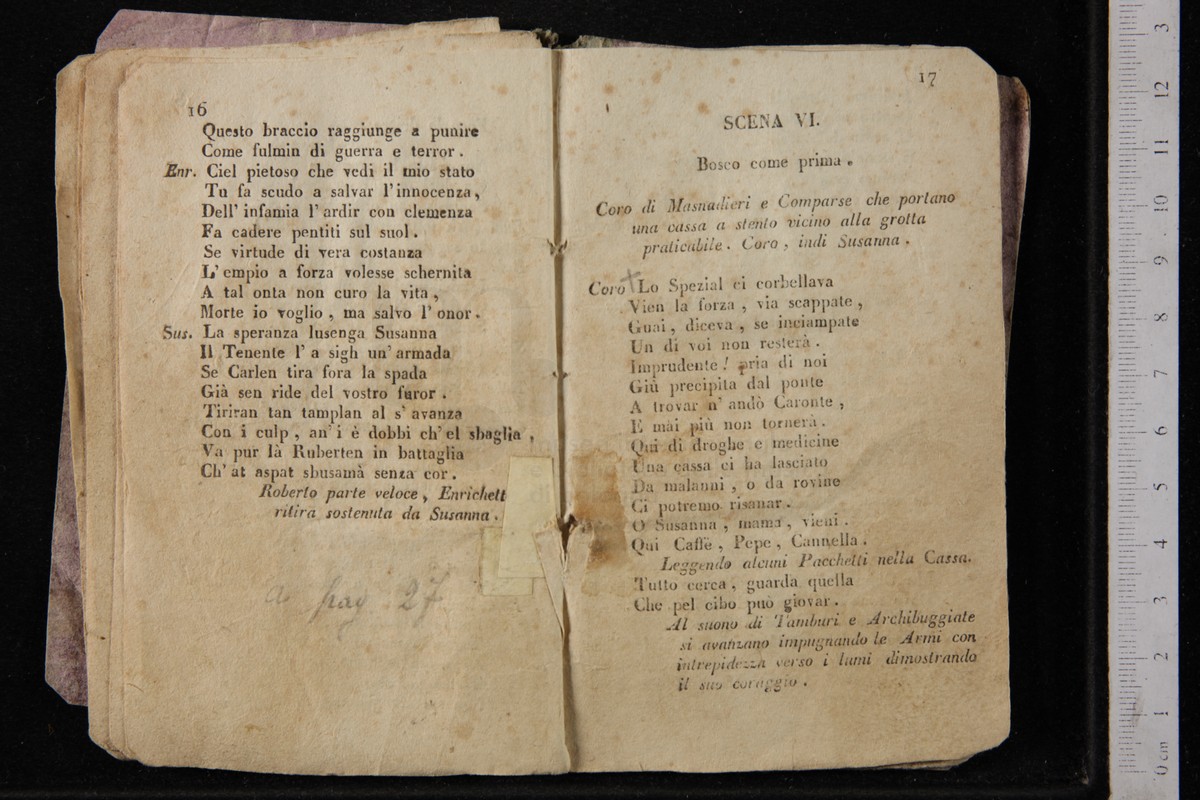 16
Questo braccio raggiunge a punire
Come fulmin di guerra e terror.
Enr. Ciel pietoso che vedi il mio stato
Tu fa scudo a salvar l'innocenza,
Dell' infamia l' ardir con clemenza
Fa cadere pentiti sul suol.
Se virtude di vera costanza
L' empio a forza volesse schernita
A tal onta non curo la vita,
Morte io voglio, ma salvo l' onor.
Sus. La speranza lusenga Susanna
Il Tenente l' a sigh un' armada
Se Carlen tira fora la spada
Già sen ride del vostro furor.
Tiriran tan tamplan al s' avanza
Con i culp, an' i è dobbi ch' el sbaglia,
Va pur là Ruberten in battaglia
Ch' at aspat sbusamà senza cor.
Roberto parte veloce, Enrichett
ritira sostenuta da Susanna.
a pag 27
17
SCENA VI.
Bosco come prima.
Coro di Masnadieri e Comparse che portano
una cassa a stento vicino alla grotta
praticabile. Coro, indi Susanna.
Coro Lo Spezial ci corbellava
Vien la forza, via scappate,
Guai, diceva, se inciampate
Un di voi non resterà.
Imprudente! pria di noi
Giù precipita dal ponte
A trovar n' andò Caronte,
E mai più non tornerà.
Qui di droghe e medicine
Una cassa ci ha lasciato
Da malanni, o da rovine
Ci potremo risanar.
O Susanna, mama, vieni.
Qui Caffè, Pepe, Cannella.
Leggendo alcuni Pacchetti nella Cassa.
Tutto cerca, guarda quella
Che pel cibo può giovar.
Al suono di Tamburi e Archibuggiate
si avanzano impugnando le Armi con
intrepidezza verso i lumi dimostrando
il suo coraggio.
0 cm 1 2 3 4 5 6 7 8 9 10 11 12 3